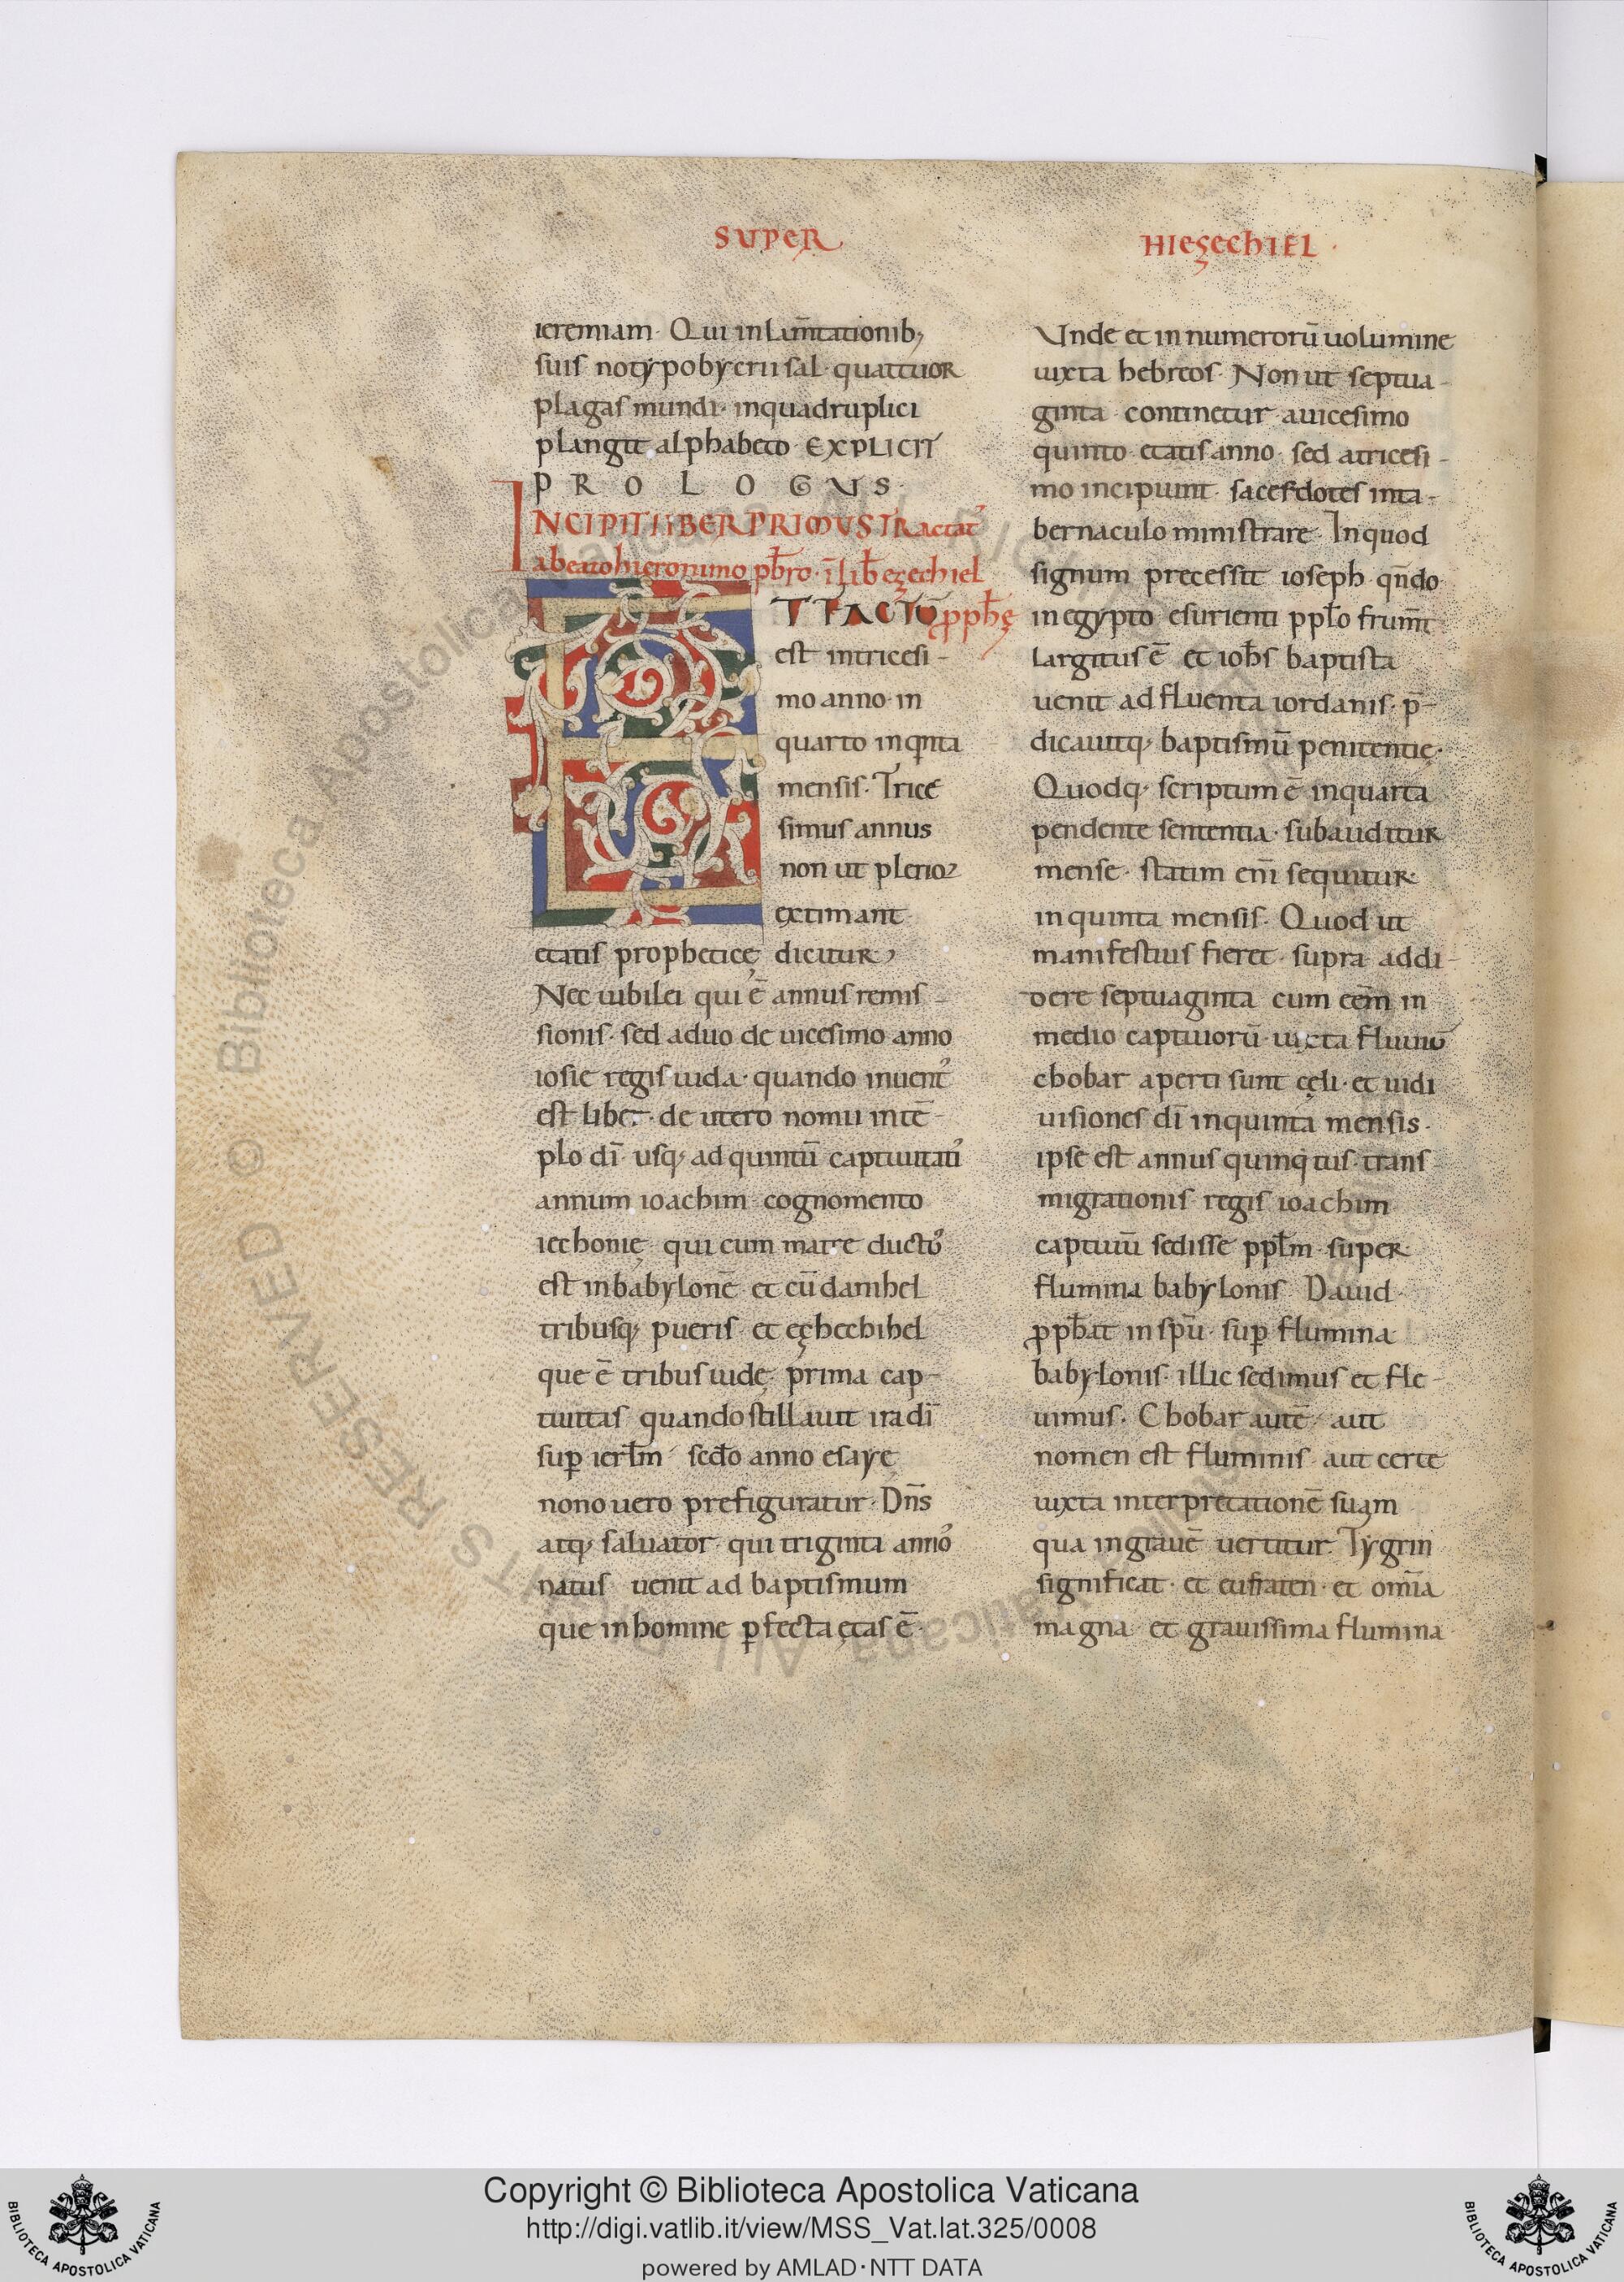 SUPER
HIEȩECHIEL ·
ieremiam · Qui in Lam̄tationib;
suis noty̓poby̓crii sal · quattuor
plagas mundi · in quadruplici
plangit alphabeto · EXPLICIT
PROLOGUS ·
INCIPIT LIBER PRIMUS TRactat᾽
a beato hieronimo pb̄ro · ī lib̄ ezechiel
ET FACTŪ ꝓpph̄ę
est in tricesi-
mo anno · in
quarto in qͥnta
mensis · Trice
simus annus
non ut plerioꝝ
extimant
etatis propheticę dicitur,
Nec iubilei qui ē annus remis-
sionis · sed a duo de uicesimo anno
iosie regis iuda · quando inuent᾽
est liber · de utero nomii in tē-
plo dī usq; ad quintū captiuitati᾽
annum ioachim cognomento
iechonię qui cum matre duct᾽
est in babylonē et cū danihel
tribusq; pueris et eçhechihel
que ē tribus iudę · prima cap-
tiuitas quando stillauit ira dī
sup̱ ierl̄m secd̄o anno esaye
nono uero prefiguratur · Dn̄s
atq; saluator qui triginta anno᾽
natus uenit ad baptismum
que in homine ꝑfecta ętas ē ·
Unde et in numerorū uolumine
iuxta hebreos · Non ut septua-
ginta continetur a uicesimo
quinto etatis anno · sed a tricesi-
mo incipiunt sacerdotes in ta-
bernaculo ministrare · In quod
signum precessit ioseph qn̄do
in egypto esurienti ppl̄o frum̄t
largitus ē et ioh̄s baptista
uenit ad fluenta iordanis · p̄-
dicauitq; baptismū penitentię ·
Quodq; scriptum ē in quarta
pendente sententia · subauditur
mense · statim enī sequitur
in quinta mensis · Quod ut
manifestius fieret · supra addi-
dere septuaginta cum eēm in
medio captiuorū iuxta fluuiū
chobar aperti sunt cęli · et uidi
uisiones dī in quinta mensis ·
ipse est annus quinqͥtus trans
migrationis regis ioachim
captiuū sedisse ppl̄m super
flumina babylonis Dauid
ꝓph̄at in sp̄u · sup̱ flumina
babylonis · illic sedimus et fle-
uimus · Chobar autē aut
nomen est fluminis aut certe
iuxta interpretationē suam
qua in grauē uertitur · Tygrin
significat · et eufraten · et om̄ia
magna et grauissima flumina
© Biblioteca Apostolica Vaticana ALL RIGHTS RESERVED
Copyright © Biblioteca Apostolica Vaticana
http://digi.vatlib.it/view/MSS_Vat.lat.325/0008
powered by AMLAD·NTT DATA
BIBLIOTECA APOSTOLICA VATICANA
BIBLIOTECA APOSTOLICA VATICANA